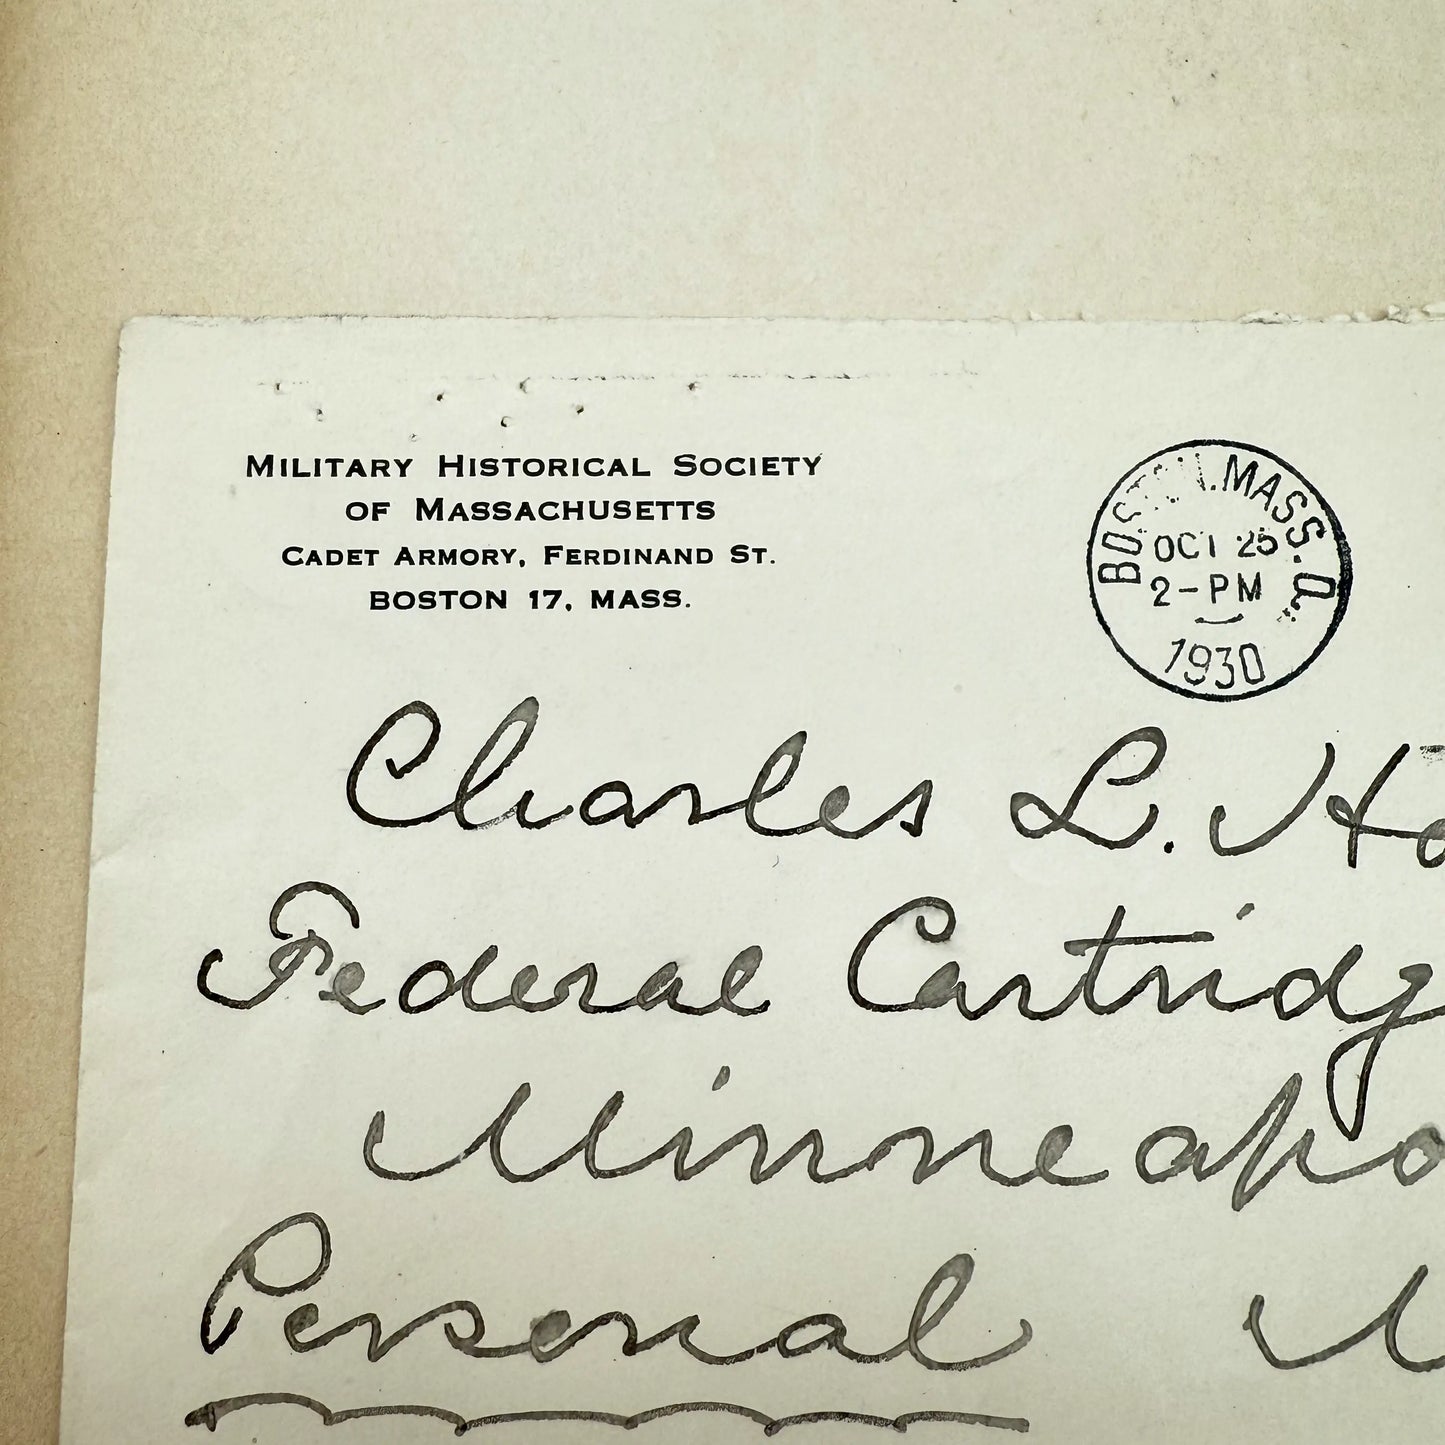 MILITARY HISTORICAL SOCIETY
OF MASSACHUSETTS
CADET ARMORY, FERDINAND ST.
BOSTON 17, MASS.
BOSTON, MASS.
OCT 25
2-PM
1930
Charles L. Ho
Federal Cartridg
Minneapo
Personal M